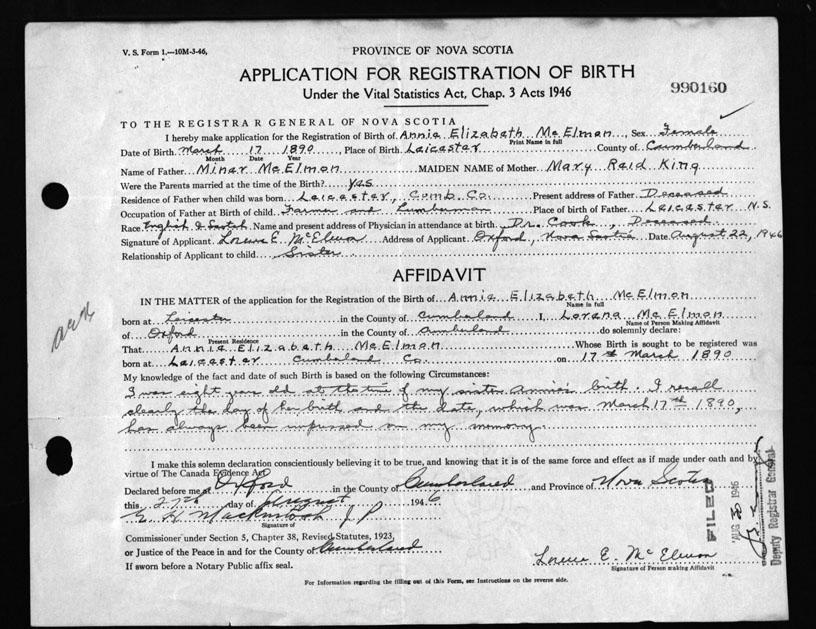 V. S. Form 1.—10M-3-46,
PROVINCE OF NOVA SCOTIA
APPLICATION FOR REGISTRATION OF BIRTH
Under the Vital Statistics Act, Chap. 3 Acts 1946
990160
TO THE REGISTRAR GENERAL OF NOVA SCOTIA
I hereby make application for the Registration of Birth of Annie Elizabeth McElmon, Sex Female
Print Name in full
Date of Birth March 17 1890, Place of Birth Leicester County of Cumberland
Month Date Year
Name of Father Miner McElmon MAIDEN NAME of Mother Mary Reid King
Were the Parents married at the time of the Birth? Yes
Residence of Father when child was born Leicester, Cumb. Co. Present address of Father Deceased
Occupation of Father at Birth of child Farmer and Lumberman Place of birth of Father Leicester N.S.
Race English & Scotch Name and present address of Physician in attendance at birth Dr. Cook, Deceased
Signature of Applicant Lorene E. McElmon Address of Applicant Oxford, Nova Scotia Date August 22, 1946
Relationship of Applicant to child Sister
AFFIDAVIT
IN THE MATTER of the application for the Registration of the Birth of Annie Elizabeth McElmon
Name in full
born at Leicester in the County of Cumberland I, Lorena McElmon
Name of Person Making Affidavit
of Oxford in the County of Cumberland do solemnly declare:
Present Residence
That Annie Elizabeth McElmon Whose Birth is sought to be registered was
born at Leicester Cumberland Co. on 17th March 1890
My knowledge of the fact and date of such Birth is based on the following Circumstances:
I was eight years old at the time of my sister Annie's birth. I recall
clearly the day of her birth and the date, which was March 17th 1890,
has always been impressed on my memory.
I make this solemn declaration conscientiously believing it to be true, and knowing that it is of the same force and effect as if made under oath and by
virtue of The Canada Evidence Act.
Declared before me at Oxford in the County of Cumberland and Province of Nova Scotia
this 27th day of August 1946
Mackintosh J P
Signature of
Commissioner under Section 5, Chapter 38, Revised Statutes, 1923,
or Justice of the Peace in and for the County of Cumberland
If sworn before a Notary Public affix seal.
Lorene E. McElmon
Signature of Person making Affidavit
FILED
AUG 30 1946
Deputy Registrar General
For Information regarding the filling out of this Form, see Instructions on the reverse side.